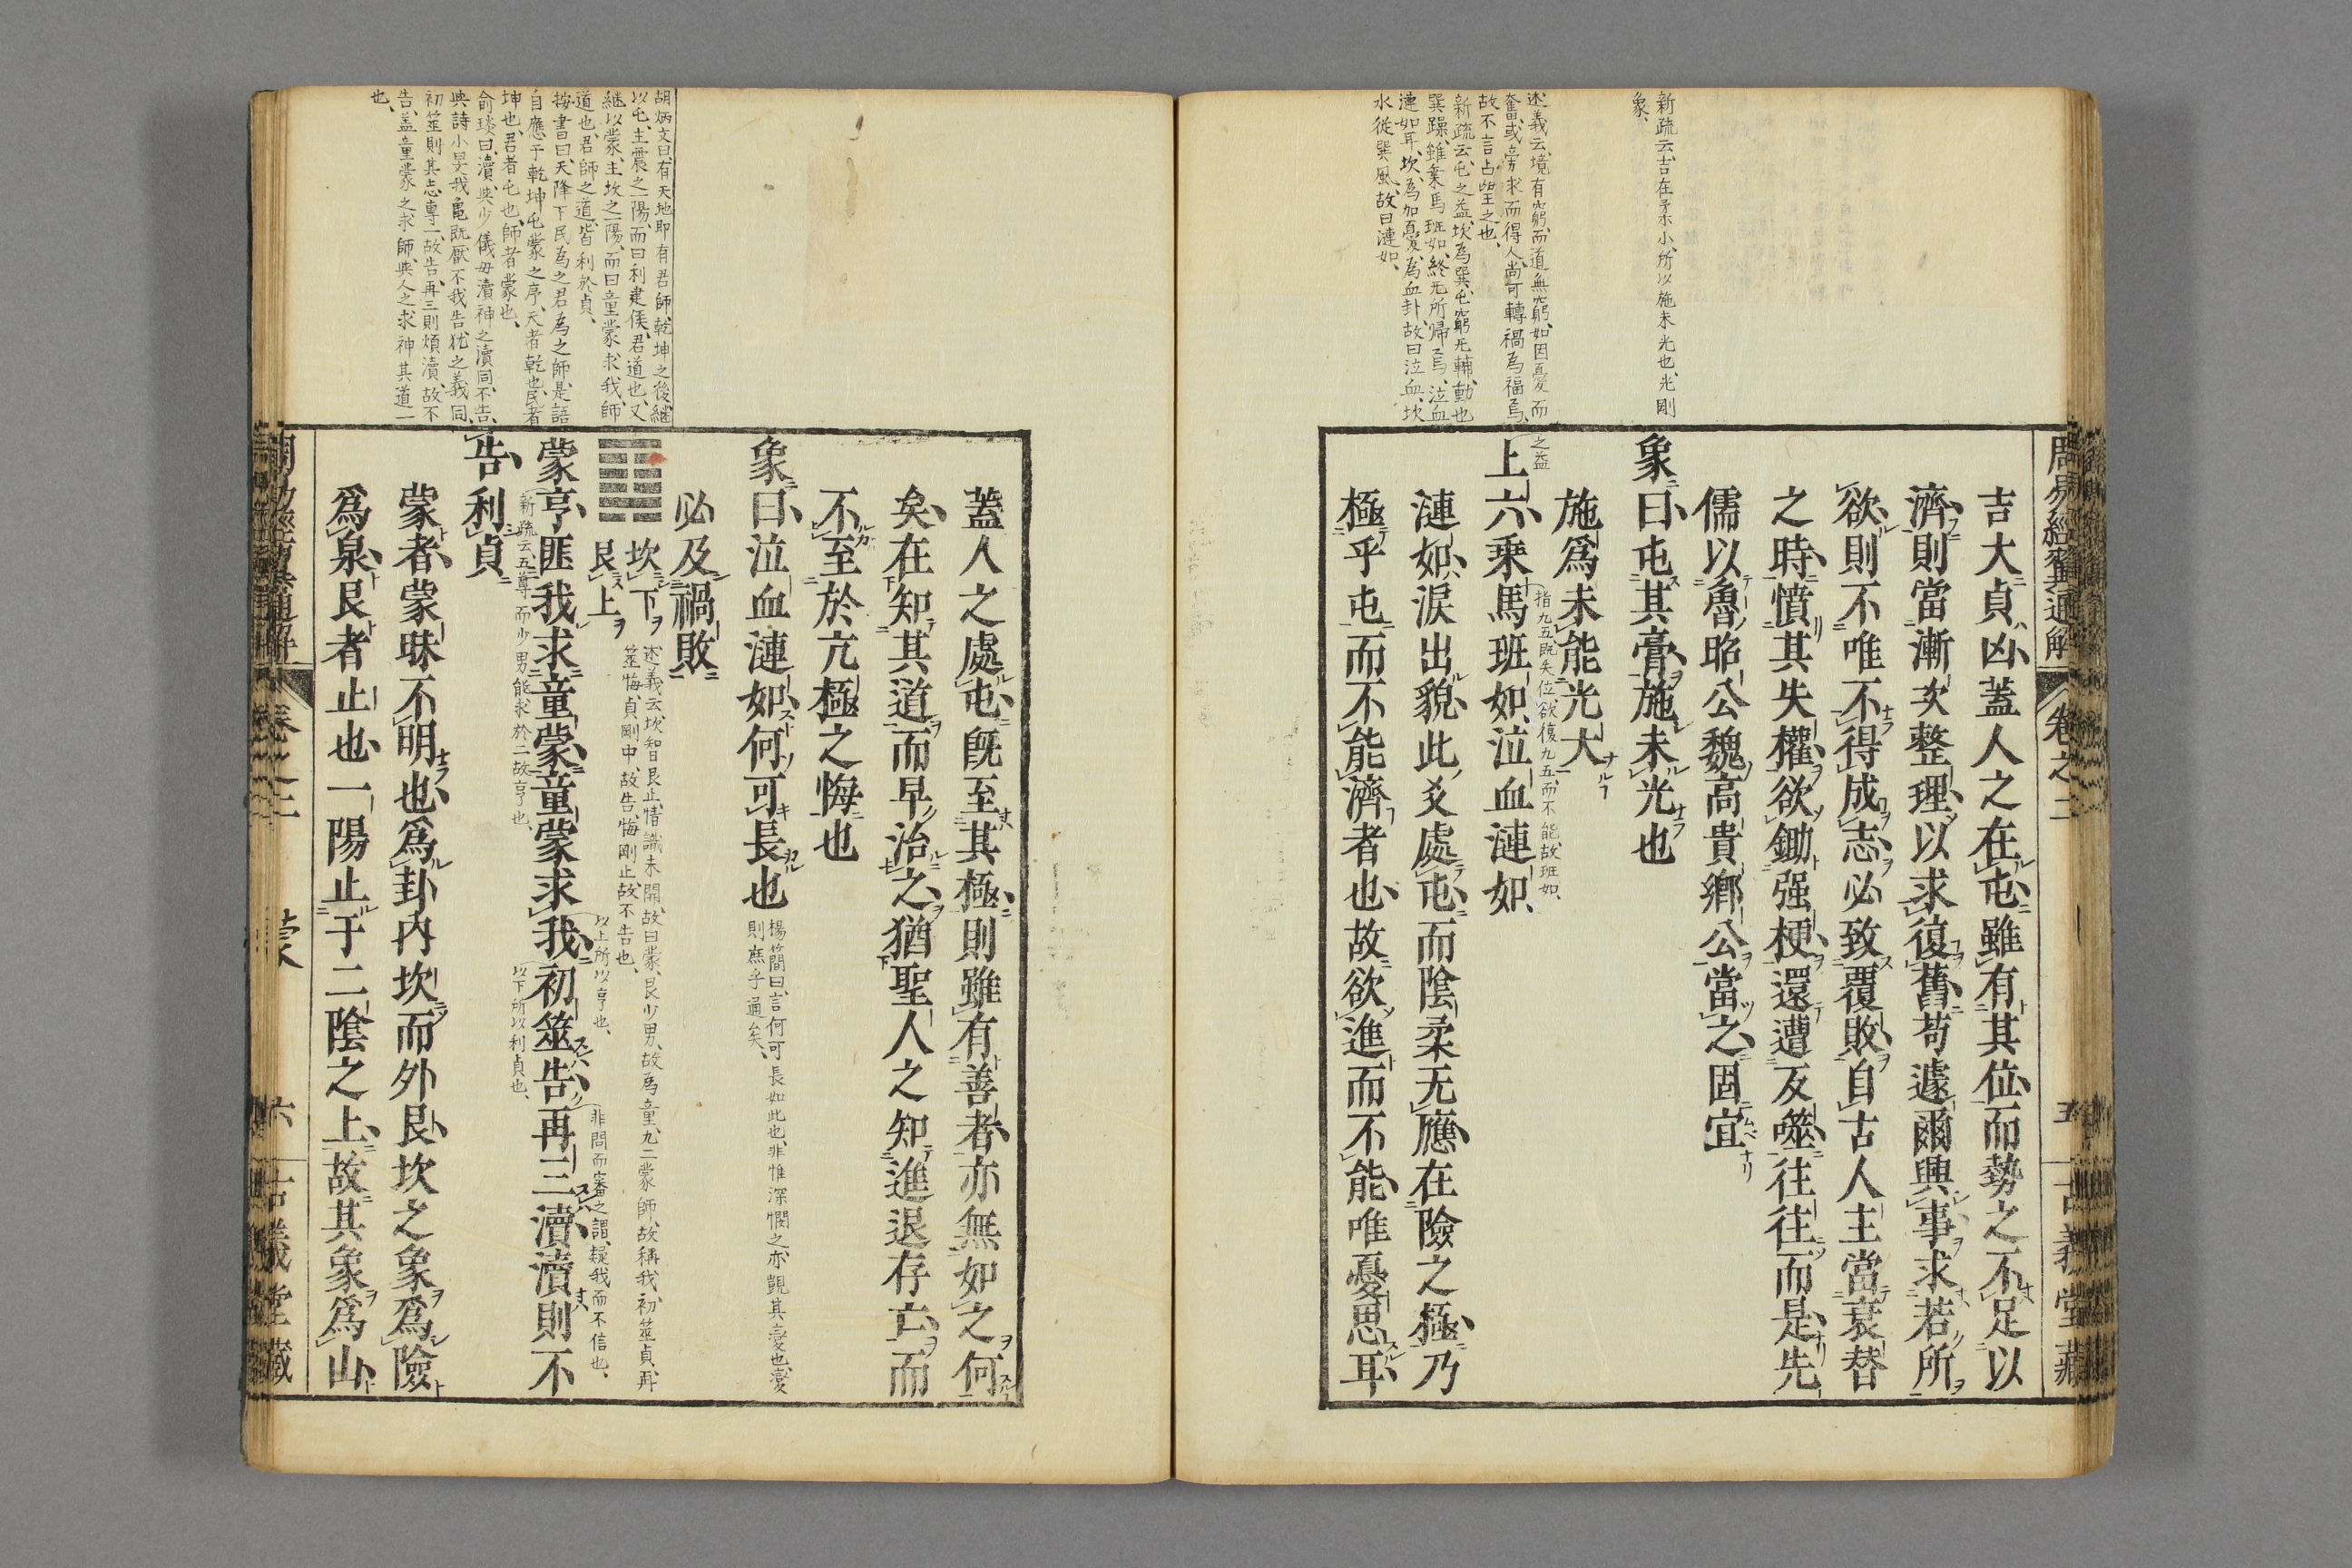 周易經翼通解
卷之二
五
古義堂藏
新疏云、吉在柔小、所以施未光也、光剛
象、
述義云、境有窮、而道無窮、如因憂而
奮、或旁求而得人、尚可轉禍為福焉、
故不言占、望之也、
新疏云、屯之益、坎為巽、屯窮无輔、動也
巽躁、雖乗馬班如、終无所歸焉、泣血
漣如耳、坎、為加憂、為血卦、故曰泣血、坎
水從巽風、故曰漣如、
吉大貞凶蓋人之在屯雖有其位而勢之不足以
濟則當漸次整理以求復舊苟遽爾興事求若所
欲則不唯不得成志必致覆敗自古人主當衰替
之時憤其失權欲鋤强梗還遭反噬往往而是先
儒以魯昭公魏高貴鄉公當之固宜
象曰屯其膏施未光也
施為未能光大
之益
上六乘馬班如泣血漣如
指九五、既失位、欲復九五、而不能、故班如、
漣如淚出貌此爻處屯而陰柔无應在險之極乃
極乎屯而不能濟者也故欲進而不能唯憂思耳
蓋人之處屯旣至其極則雖有善者亦無如之何
矣在知其道而早治之猶聖人之知進退存亡而
不至於亢極之悔也
象曰泣血漣如何可長也
楊簡曰、言何可長如此也、非惟深憫之、亦覬其變也、變
則庶乎通矣、
必及禍敗
坎下
艮上
述義云、坎知、艮止、情識未開、故曰蒙、艮少男、故為童、九二蒙師、故稱我、初筮貞、再
筮悔、貞剛中、故告、悔剛止、故不告也、
蒙亨匪我求童蒙童蒙求我初筮告再三瀆瀆則不
以上所以亨也、
以下所以利貞也、
非問而審之謂、疑我而不信也、
新疏云、五尊而少男、能求於二、故亨也、
告利貞
蒙者蒙昧不明也為卦內坎而外艮坎之象為險
為泉艮者止也一陽止于二陰之上故其象為山
胡炳文曰、有天地、即有君師、乾坤之後、繼
以屯、主震之一陽、而曰利建侯、君道也、又
継以蒙、主坎之一陽、而曰童蒙求我、師
道也、君師之道、皆利於貞、
按書曰、天降下民、為之君、為之師、是語
自應于乾坤屯蒙之序、天者乾也、民者
坤也、君者屯也、師者蒙也、
俞琰曰、瀆、與少儀毋瀆神之瀆同、不告、
與詩小旻我亀既厭、不我告猶之義同、
初筮則其志專一、故告、再三則煩瀆、故不
告、盖童蒙之求師、與人之求神、其道一
也、
卷之二
蒙
六
古義堂藏